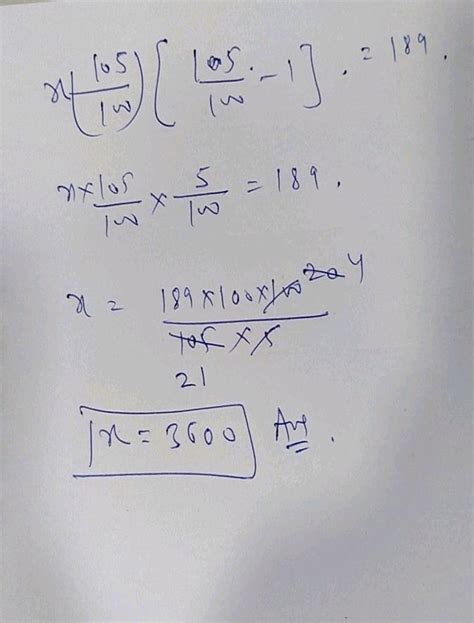 x(105/100)[105/100 - 1] . = 189.
x × 105/100 × 5/100 = 189.
x = 189×100×100 20 4
105 × 5
21
x = 3600 Ans.